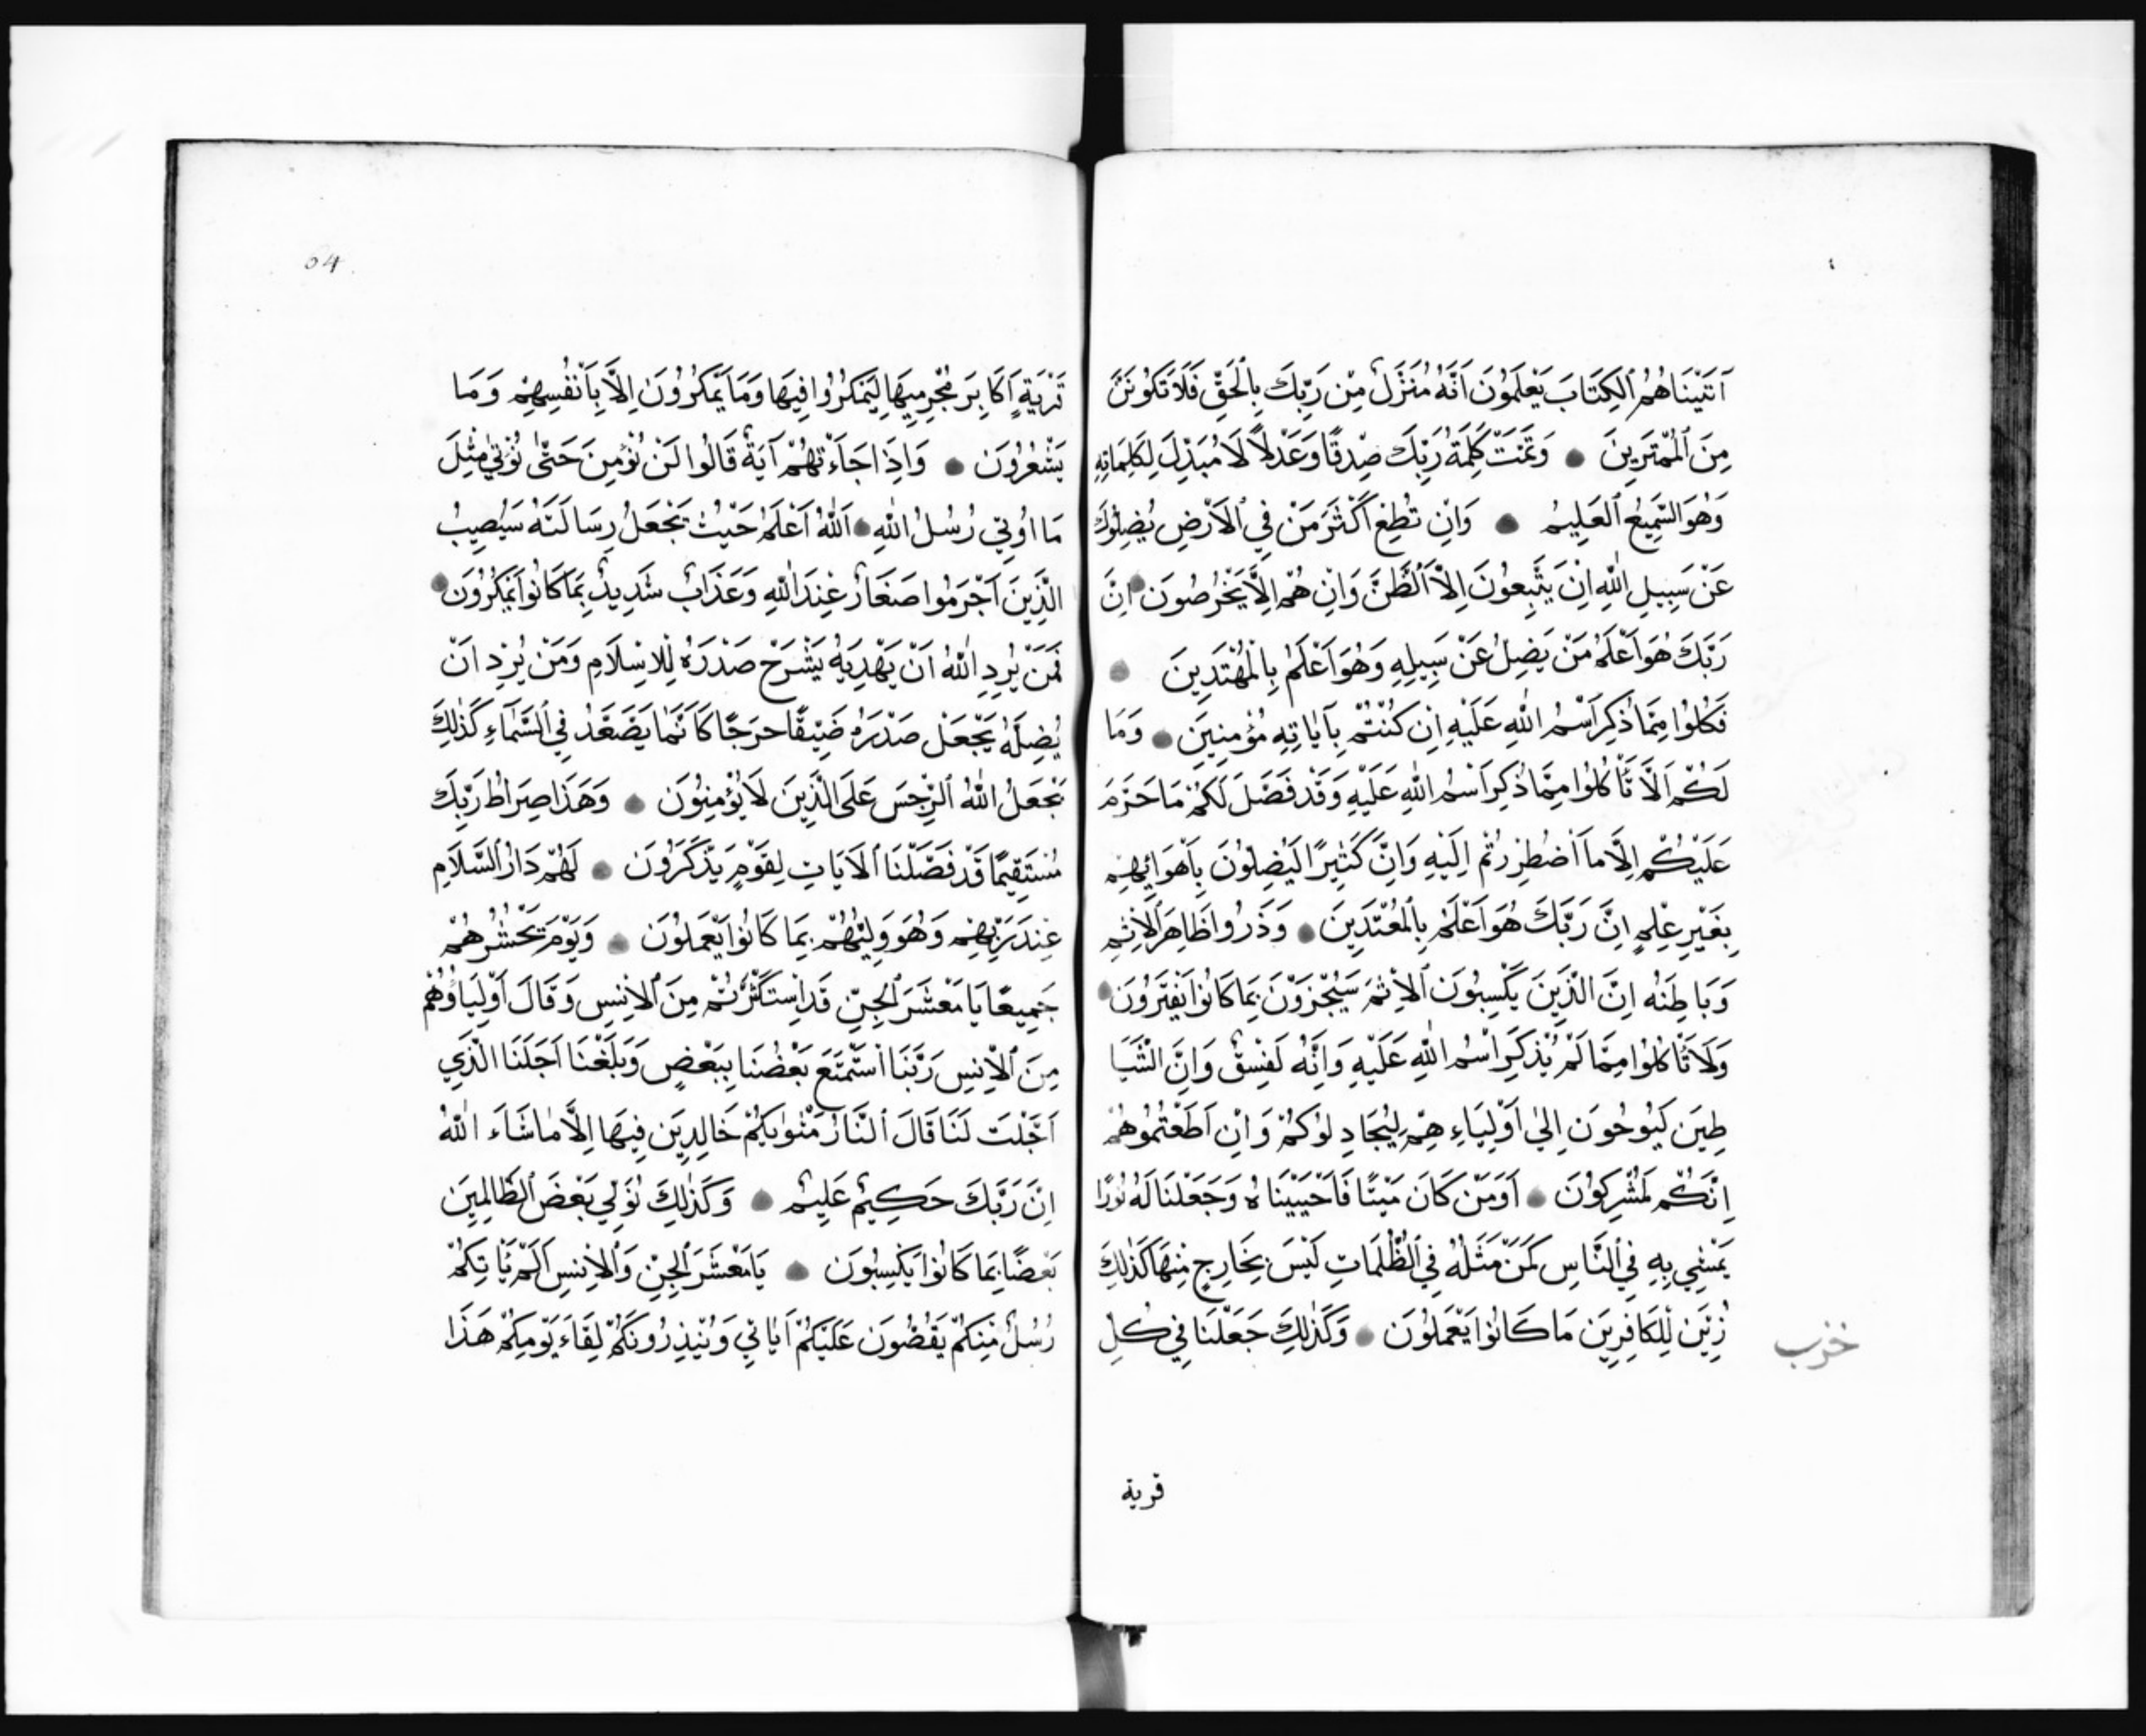 آتَيْنَاهُمُ ٱلْكِتَابَ يَعْلَمُونَ اَنَّهُ مُنَزَّلٌ مِنْ رَبِّكَ بِالْحَقِّ فَلَا تَكُونَنَّ
مِنَ ٱلْمُمْتَرِينَ وَتَمَّتْ كَلِمَةُ رَبِّكَ صِدْقًا وَعَدْلاً لَا مُبَدِّلَ لِكَلِمَاتِهِ
وَهُوَ السَّمِيعُ ٱلْعَلِيمُ وَاِنْ تُطِعْ اَكْثَرَ مَنْ فِي ٱلْاَرْضِ يُضِلُّوكَ
عَنْ سَبِيلِ اللّٰهِ اِنْ يَتَّبِعُونَ اِلَّا ٱلظَّنَّ وَاِنْ هُمْ اِلَّا يَخْرُصُونَ اِنَّ
رَبَّكَ هُوَ اَعْلَمُ مَنْ يَضِلُّ عَنْ سَبِيلِهِ وَهُوَ اَعْلَمُ بِالْمُهْتَدِينَ
فَكُلُوا مِمَّا ذُكِرَ اَسْمُ اللّٰهِ عَلَيْهِ اِنْ كُنْتُمْ بِآيَاتِهِ مُؤْمِنِينَ وَمَا
لَكُمْ اَلَّا تَأْكُلُوا مِمَّا ذُكِرَ اسْمُ اللّٰهِ عَلَيْهِ وَقَدْ فَصَّلَ لَكُمْ مَا حَرَّمَ
عَلَيْكُمْ اِلَّا مَا اَضْطُرِرْتُمْ اِلَيْهِ وَاِنَّ كَثِيرًا لَيُضِلُّونَ بِاَهْوَائِهِمْ
بِغَيْرِ عِلْمٍ اِنَّ رَبَّكَ هُوَ اَعْلَمُ بِٱلْمُعْتَدِينَ وَذَرُوا ظَاهِرَ ٱلْاِثْمِ
وَبَاطِنَهُ اِنَّ الَّذِينَ يَكْسِبُونَ ٱلْاِثْمَ سَيُجْزَوْنَ بِمَا كَانُوا يَقْتَرِفُونَ
وَلَا تَأْكُلُوا مِمَّا لَمْ يُذْكَرِ اسْمُ اللّٰهِ عَلَيْهِ وَاِنَّهُ لَفِسْقٌ وَاِنَّ الشَّيَا
طِينَ لَيُوحُونَ اِلَىٰ اَوْلِيَاءِهِمْ لِيُجَادِلُوكُمْ وَاِنْ اَطَعْتُمُوهُمْ
اِنَّكُمْ لَمُشْرِكُونَ اَوَمَنْ كَانَ مَيْتًا فَاَحْيَيْنَاهُ وَجَعَلْنَا لَهُ نُورًا
يَمْشِي بِهِ فِي ٱلنَّاسِ كَمَنْ مَثَلُهُ فِي ٱلظُّلُمَاتِ لَيْسَ بِخَارِجٍ مِنْهَا كَذٰلِكَ
زُيِّنَ لِلْكَافِرِينَ مَا كَانُوا يَعْمَلُونَ وَكَذٰلِكَ جَعَلْنَا فِي كُلِّ
قرية
64
قَرْيَةٍ اَكَابِرَ مُجْرِمِيهَا لِيَمْكُرُوا فِيهَا وَمَا يَمْكُرُونَ اِلَّا بِاَنْفُسِهِمْ وَمَا
يَشْعُرُونَ وَاِذَا جَاءَتْهُمْ آيَةٌ قَالُوا لَنْ نُؤْمِنَ حَتّٰى نُؤْتٰى مِثْلَ
مَا اُوتِيَ رُسُلُ اللّٰهِ اَللّٰهُ اَعْلَمُ حَيْثُ يَجْعَلُ رِسَالَتَهُ سَيُصِيبُ
الَّذِينَ اَجْرَمُوا صَغَارٌ عِنْدَ اللّٰهِ وَعَذَابٌ شَدِيدٌ بِمَا كَانُوا يَمْكُرُونَ
فَمَنْ يُرِدِ اللّٰهُ اَنْ يَهْدِيَهُ يَشْرَحْ صَدْرَهُ لِلْاِسْلَامِ وَمَنْ يُرِدْ اَنْ
يُضِلَّهُ يَجْعَلْ صَدْرَهُ ضَيِّقًا حَرَجًا كَاَنَّمَا يَصَّعَّدُ فِي ٱلسَّمَاءِ كَذٰلِكَ
يَجْعَلُ اللّٰهُ ٱلرِّجْسَ عَلَى الَّذِينَ لَا يُؤْمِنُونَ وَهٰذَا صِرَاطُ رَبِّكَ
مُسْتَقِيمًا قَدْ فَصَّلْنَا ٱلْآيَاتِ لِقَوْمٍ يَذَّكَّرُونَ لَهُمْ دَارُ ٱلسَّلَامِ
عِنْدَ رَبِّهِمْ وَهُوَ وَلِيُّهُمْ بِمَا كَانُوا يَعْمَلُونَ وَيَوْمَ يَحْشُرُهُمْ
جَمِيعًا يَا مَعْشَرَ ٱلْجِنِّ قَدِ اسْتَكْثَرْتُمْ مِنَ ٱلْاِنْسِ وَقَالَ اَوْلِيَاؤُهُمْ
مِنَ ٱلْاِنْسِ رَبَّنَا اسْتَمْتَعَ بَعْضُنَا بِبَعْضٍ وَبَلَغْنَا اَجَلَنَا الَّذِي
اَجَّلْتَ لَنَا قَالَ ٱلنَّارُ مَثْوٰيكُمْ خَالِدِينَ فِيهَا اِلَّا مَا شَاءَ اللّٰهُ
اِنَّ رَبَّكَ حَكِيمٌ عَلِيمٌ وَكَذٰلِكَ نُوَلِّي بَعْضَ ٱلظَّالِمِينَ
بَعْضًا بِمَا كَانُوا يَكْسِبُونَ يَا مَعْشَرَ ٱلْجِنِّ وَٱلْاِنْسِ اَلَمْ يَأْتِكُمْ
رُسُلٌ مِنْكُمْ يَقُصُّونَ عَلَيْكُمْ آيَاتِي وَيُنْذِرُونَكُمْ لِقَاءَ يَوْمِكُمْ هَذَا